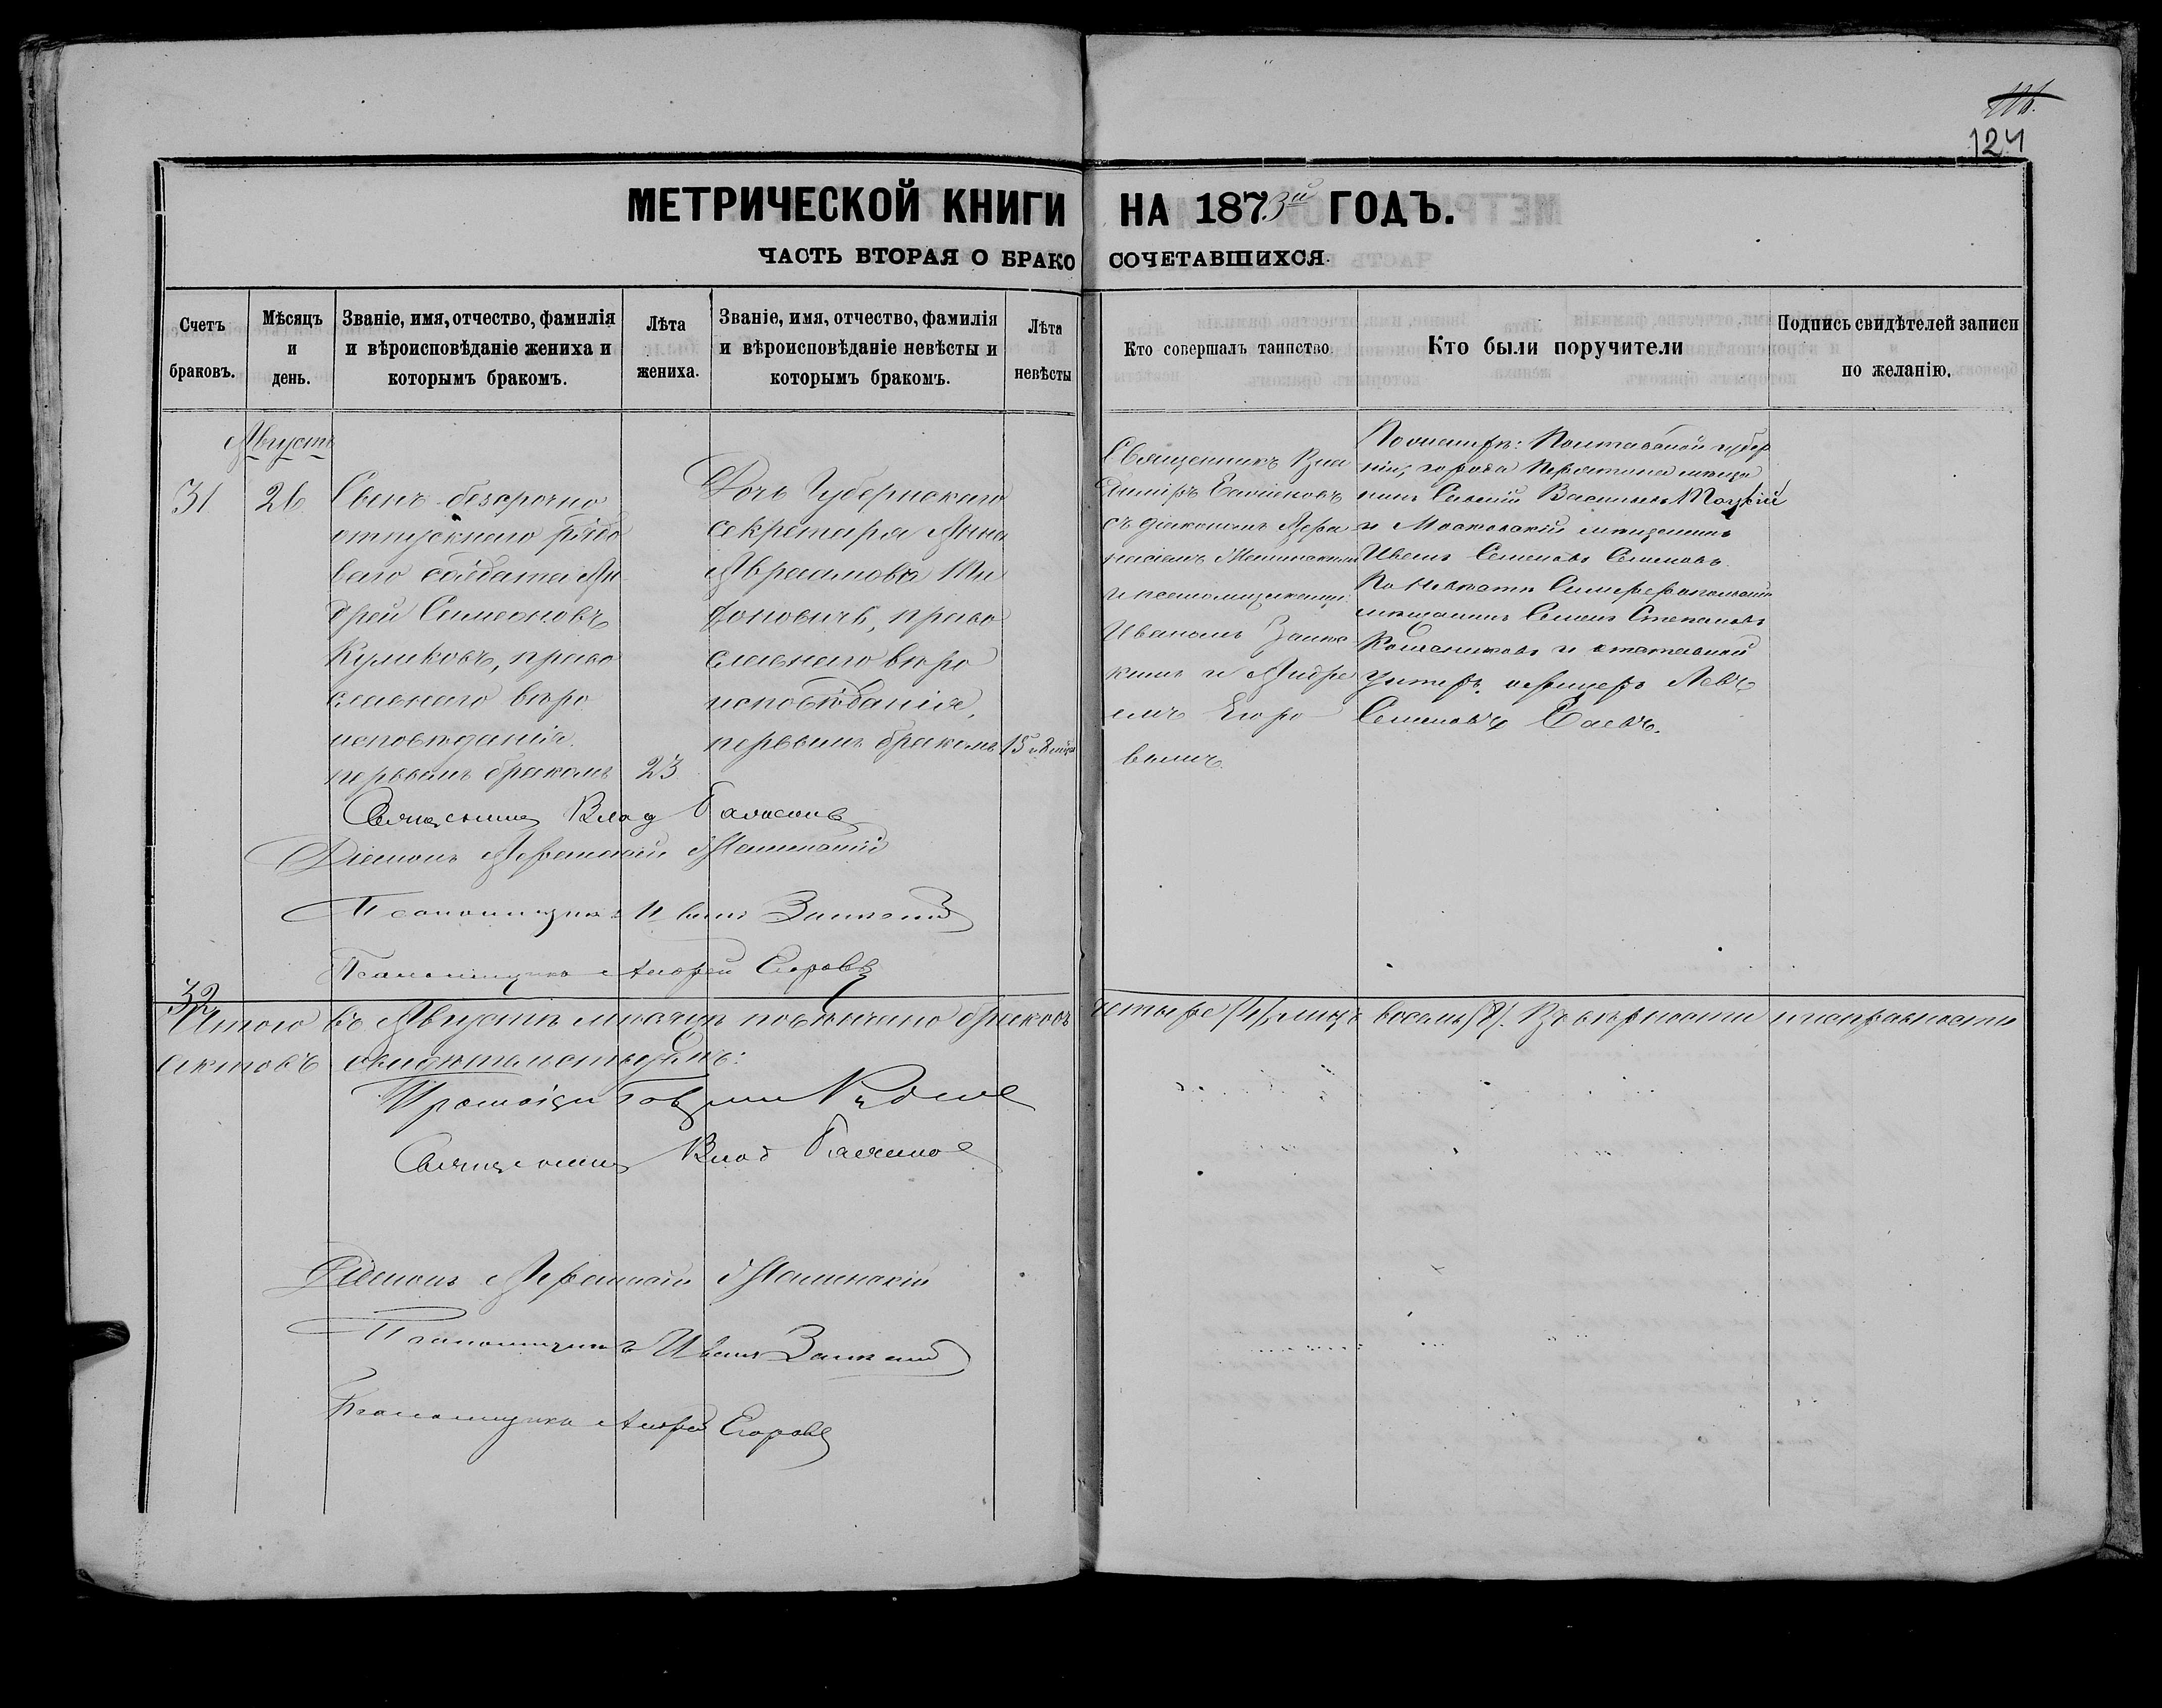 124
МЕТРИЧЕСКОЙ КНИГИ НА 1873й ГОДЪ.
ЧАСТЬ ВТОРАЯ О БРАКОСОЧЕТАВШИХСЯ.
Счетъ браковъ.
Мѣсяцъ и день.
Званіе, имя, отчество, фамилія и вѣроисповѣданіе жениха и которымъ бракомъ.
Лѣта жениха.
Званіе, имя, отчество, фамилія и вѣроисповѣданіе невѣсты и которымъ бракомъ.
Лѣта невѣсты
Кто совершалъ таинство.
Кто были поручители
Подпись свидѣтелей записи по желанію.
Августъ
31
26
Сынъ безсрочно
отпускнаго рядо
ваго солдата Ан
дрей Симеоновъ
Куликовъ, право
славнаго вѣро
исповѣданія.
первымъ бракомъ
23
Дочь Губернскаго
секретаря Анна
Авраамова
право
славнаго вѣро
исповѣданія,
первымъ бракомъ
15
Священникъ Вла
диміръ
съ діакономъ Афа
насіемъ
и псаломщиками
Иваномъ
и Андре
емъ Егоро
вымъ.
По женихѣ: Полтавской губер
ніи, города Пирятина мѣща
нинъ Васильевъ
и Московскій мѣщанинъ
Иванъ Семеновъ Семеновъ.
По невѣстѣ Симферопольскій
мѣщанинъ Семенъ Степановъ
и отставной
унтеръ офицеръ Левъ
Семеновъ
Священникъ Влад
Діаконъ Афанасій
Псаломщикъ Иванъ
Псаломщикъ Андрей Егоровъ
32
Итого въ Августѣ мѣсяцѣ повѣнчано браковъ четыре (4), лицъ восемь (8). Въ вѣрности и исправности
актовъ свидѣтельствуемъ:
Священникъ Влад
Діаконъ Афанасій
Псаломщикъ Иванъ
Псаломщикъ Андрей Егоровъ